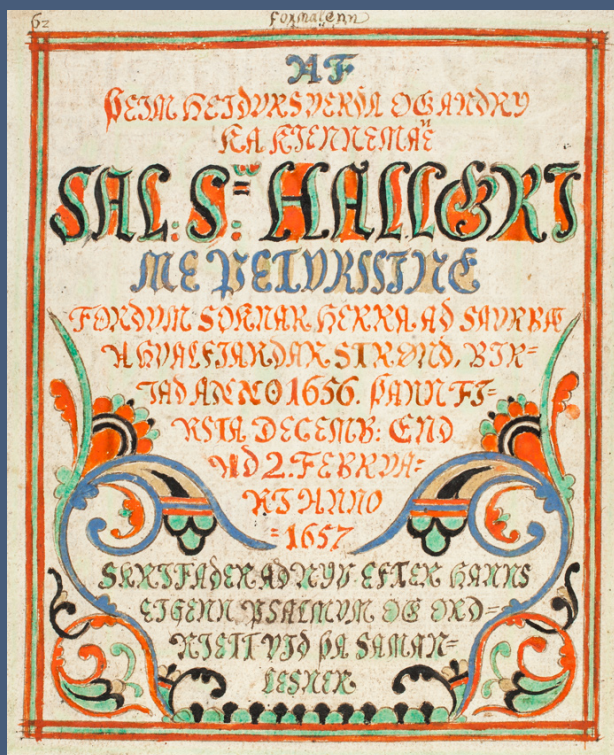 62
Formalenn
AF
ÞEIM HEIDVRSVERDA OG ANDRY
KA KIENNEMAÑE
SAL: S: HALLGRI
ME PETVRSSINE
FORDVM SOKNAR HERRA AD SAVRBÆ
A HVALFIARDAR STRØND. BIR=
IAD ANNO 1656. ÞANN FI=
RSTA DECEMB: END
AD 2. FEBRVA=
RI ANNO
=1657
SKRIFADER AD NYV EFTER HANNS
EIGENN PSALMVM OG ORD=
RIETT VID ÞA SAMAN=
LESNER